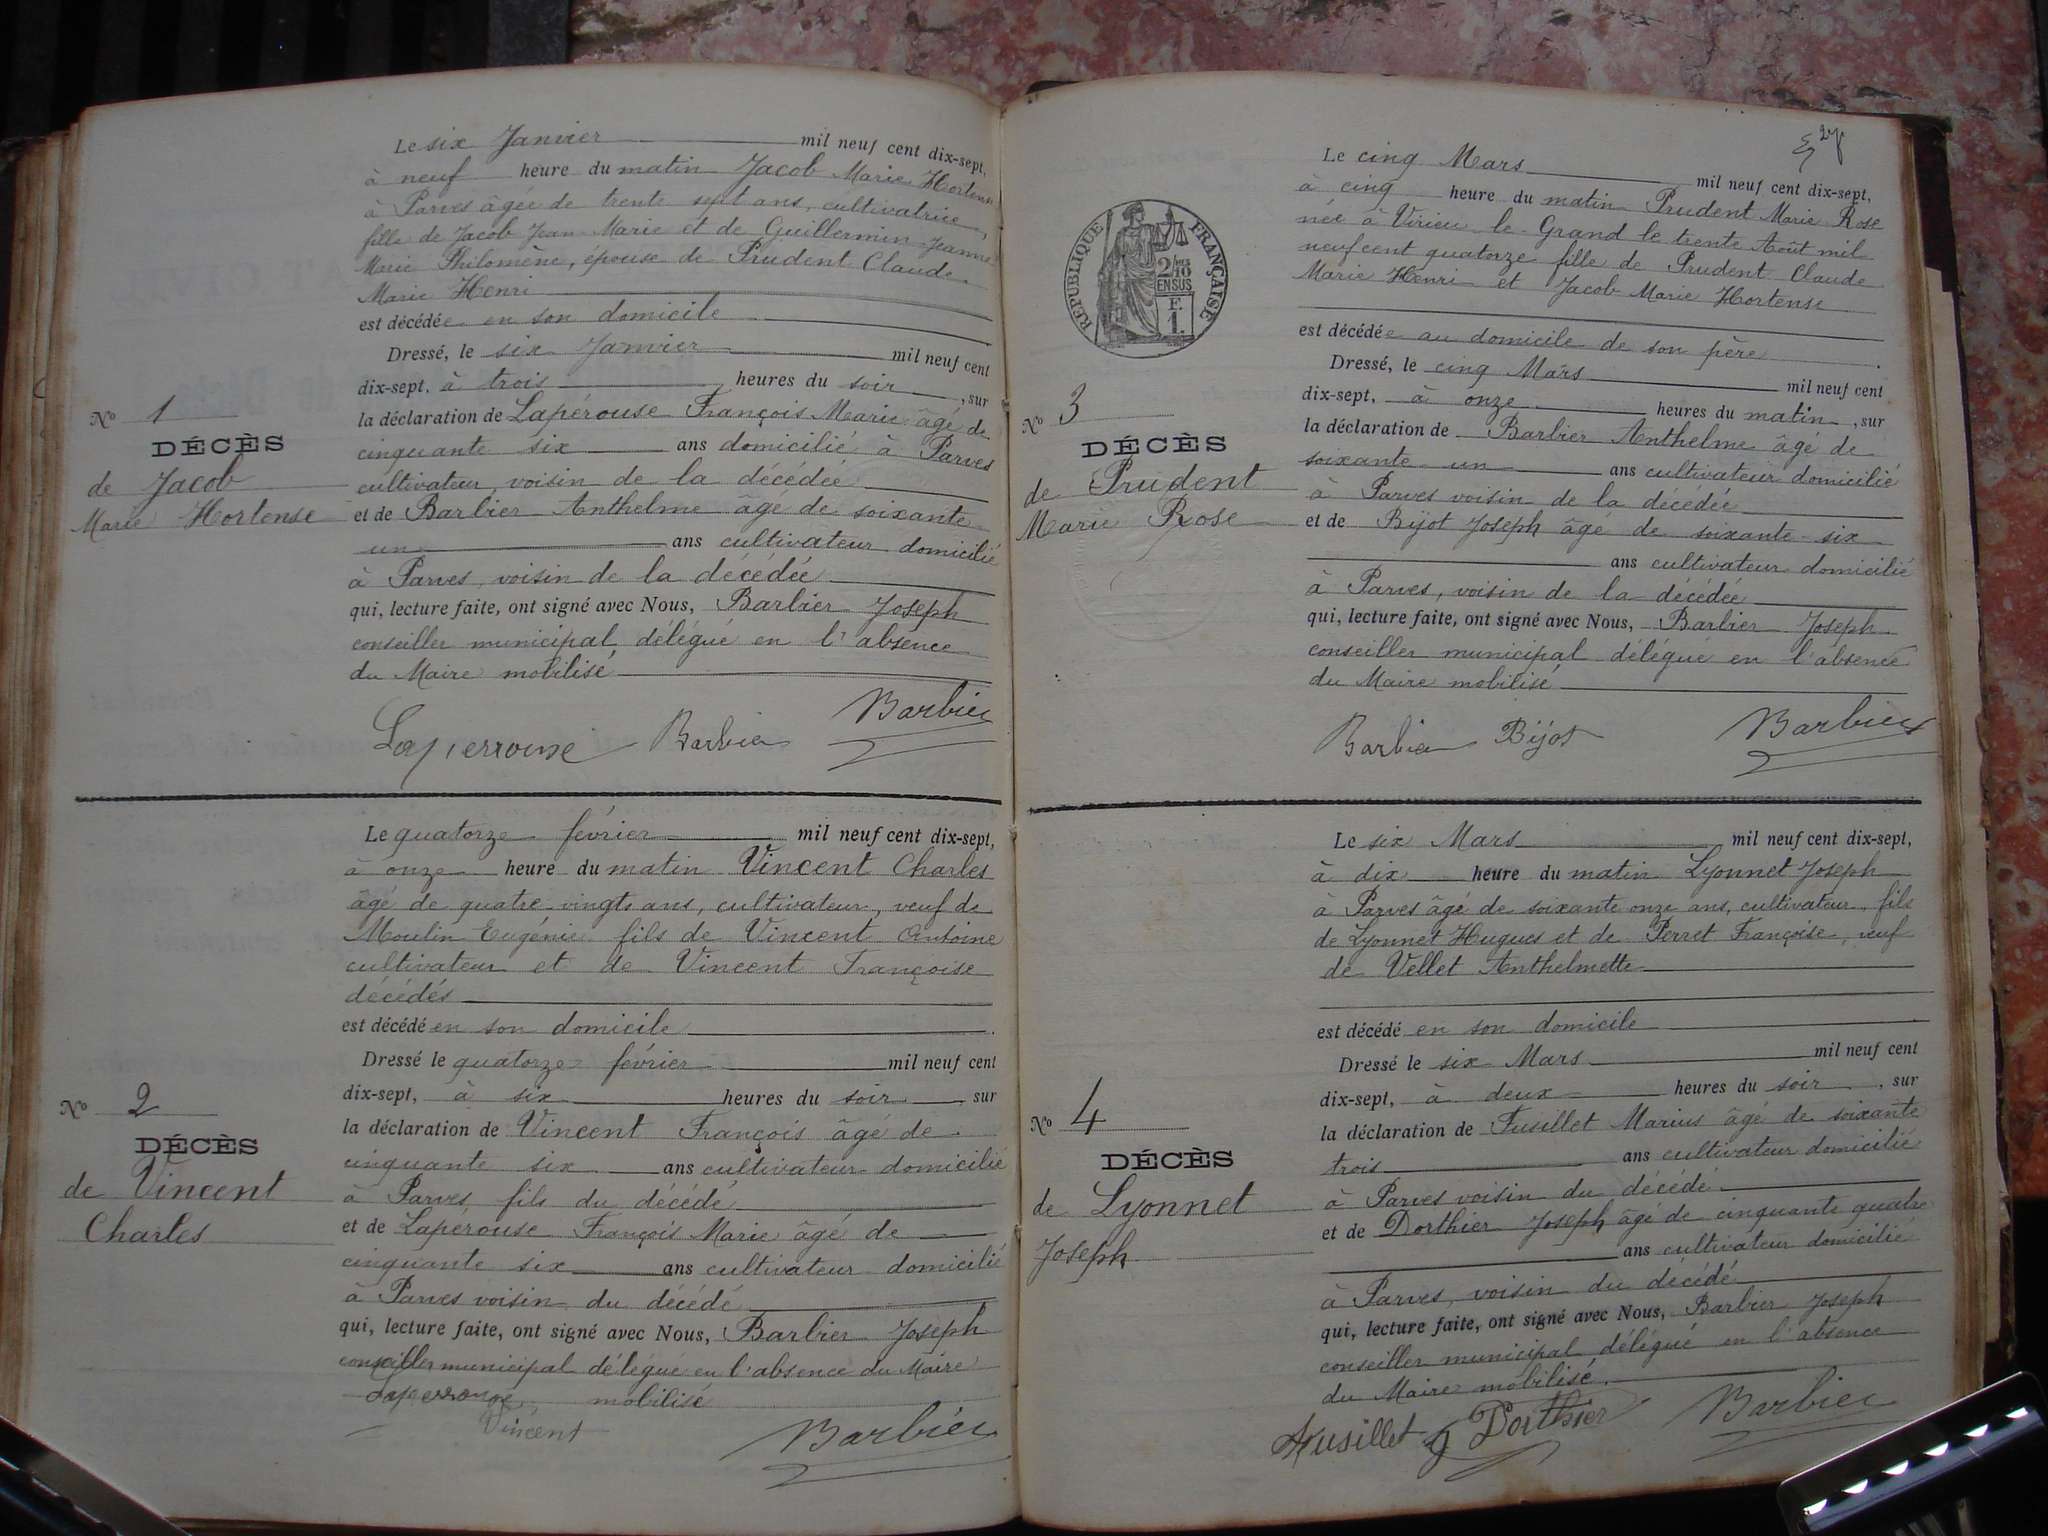 Le six Janvier mil neuf cent dix-sept,
à neuf heure du matin Jacob Marie Hortense
à Parves âgée de trente sept ans, cultivatrice,
fille de Jacob Jean Marie et de Guillermin Jeanne
Marie Philomène, épouse de Prudent Claude
Marie Henri
est décédée en son domicile
Dressé, le six Janvier mil neuf cent
dix-sept, à trois heures du soir, sur
la déclaration de Lapérouse François Marie âgé de
cinquante six ans domicilié à Parves
cultivateur, voisin de la décédée
et de Barbier Anthelme âgé de soixante
un ans cultivateur domicilié
à Parves, voisin de la décédée
qui, lecture faite, ont signé avec Nous, Barbier Joseph
conseiller municipal délégué en l'absence
du Maire mobilisé
Laperrouse Barbier Barbier
No 1
DÉCÈS
de Jacob
Marie Hortense
Le quatorze février mil neuf cent dix-sept,
à onze heure du matin Vincent Charles
âgé de quatre-vingts ans, cultivateur, veuf de
Moulin Eugénie fils de Vincent Antoine
cultivateur et de Vincent Françoise
décédés
est décédé en son domicile.
Dressé le quatorze février mil neuf cent
dix-sept, à six heures du soir, sur
la déclaration de Vincent François âgé de
cinquante six ans cultivateur domicilié
à Parves fils du décédé
et de Lapérouse François Marie âgé de
cinquante six ans cultivateur domicilié
à Parves voisin du décédé
qui, lecture faite, ont signé avec Nous, Barbier Joseph
conseiller municipal délégué en l'absence du Maire
Laperrouse mobilisé
Vincent Barbier
No 2
DÉCÈS
de Vincent
Charles
RÉPUBLIQUE FRANÇAISE
2/10
EN SUS
F.
1.
Le cinq Mars mil neuf cent dix-sept,
à cinq heure du matin Prudent Marie Rose
née à Virieu-le-Grand le trente Août mil
neuf cent quatorze fille de Prudent Claude
Marie Henri et Jacob Marie Hortense
est décédée au domicile de son père.
Dressé, le cinq Mars mil neuf cent
dix-sept, à onze heures du matin, sur
la déclaration de Barbier Anthelme âgé de
soixante un ans cultivateur domicilié
à Parves voisin de la décédée
et de Bijot Joseph âgé de soixante-six
ans cultivateur domicilié
à Parves, voisin de la décédée
qui, lecture faite, ont signé avec Nous, Barbier Joseph
conseiller municipal délégué en l'absence
du Maire mobilisé
Barbier Bijot Barbier
No 3
DÉCÈS
de Prudent
Marie Rose
Le six Mars mil neuf cent dix-sept,
à dix heure du matin Lyonnet Joseph
à Parves âgé de soixante onze ans, cultivateur, fils
de Lyonnet Hugues et de Perret Françoise, veuf
de Vellet Anthelmette
est décédé en son domicile
Dressé le six Mars mil neuf cent
dix-sept, à deux heures du soir, sur
la déclaration de Fusillet Marius âgé de soixante
trois ans cultivateur domicilié
à Parves voisin du décédé
et de Dorthier Joseph âgé de cinquante quatre
ans cultivateur domicilié
à Parves, voisin du décédé
qui, lecture faite, ont signé avec Nous, Barbier Joseph
conseiller municipal délégué en l'absence
du Maire mobilisé.
Fusillet Dorthier Barbier
No 4
DÉCÈS
de Lyonnet
Joseph